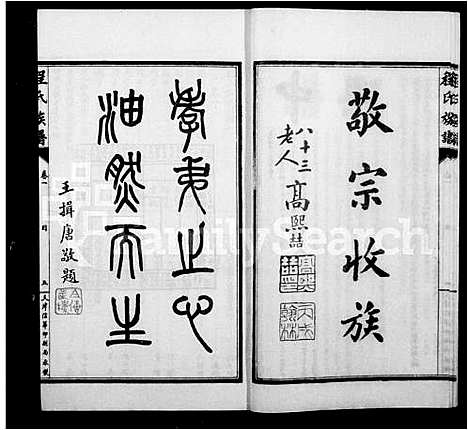 敬宗收族
八十三
老人高熙喆
孝弟之心
油然而生
王揖唐敬題
程氏族譜
卷一
五
FamilySearch